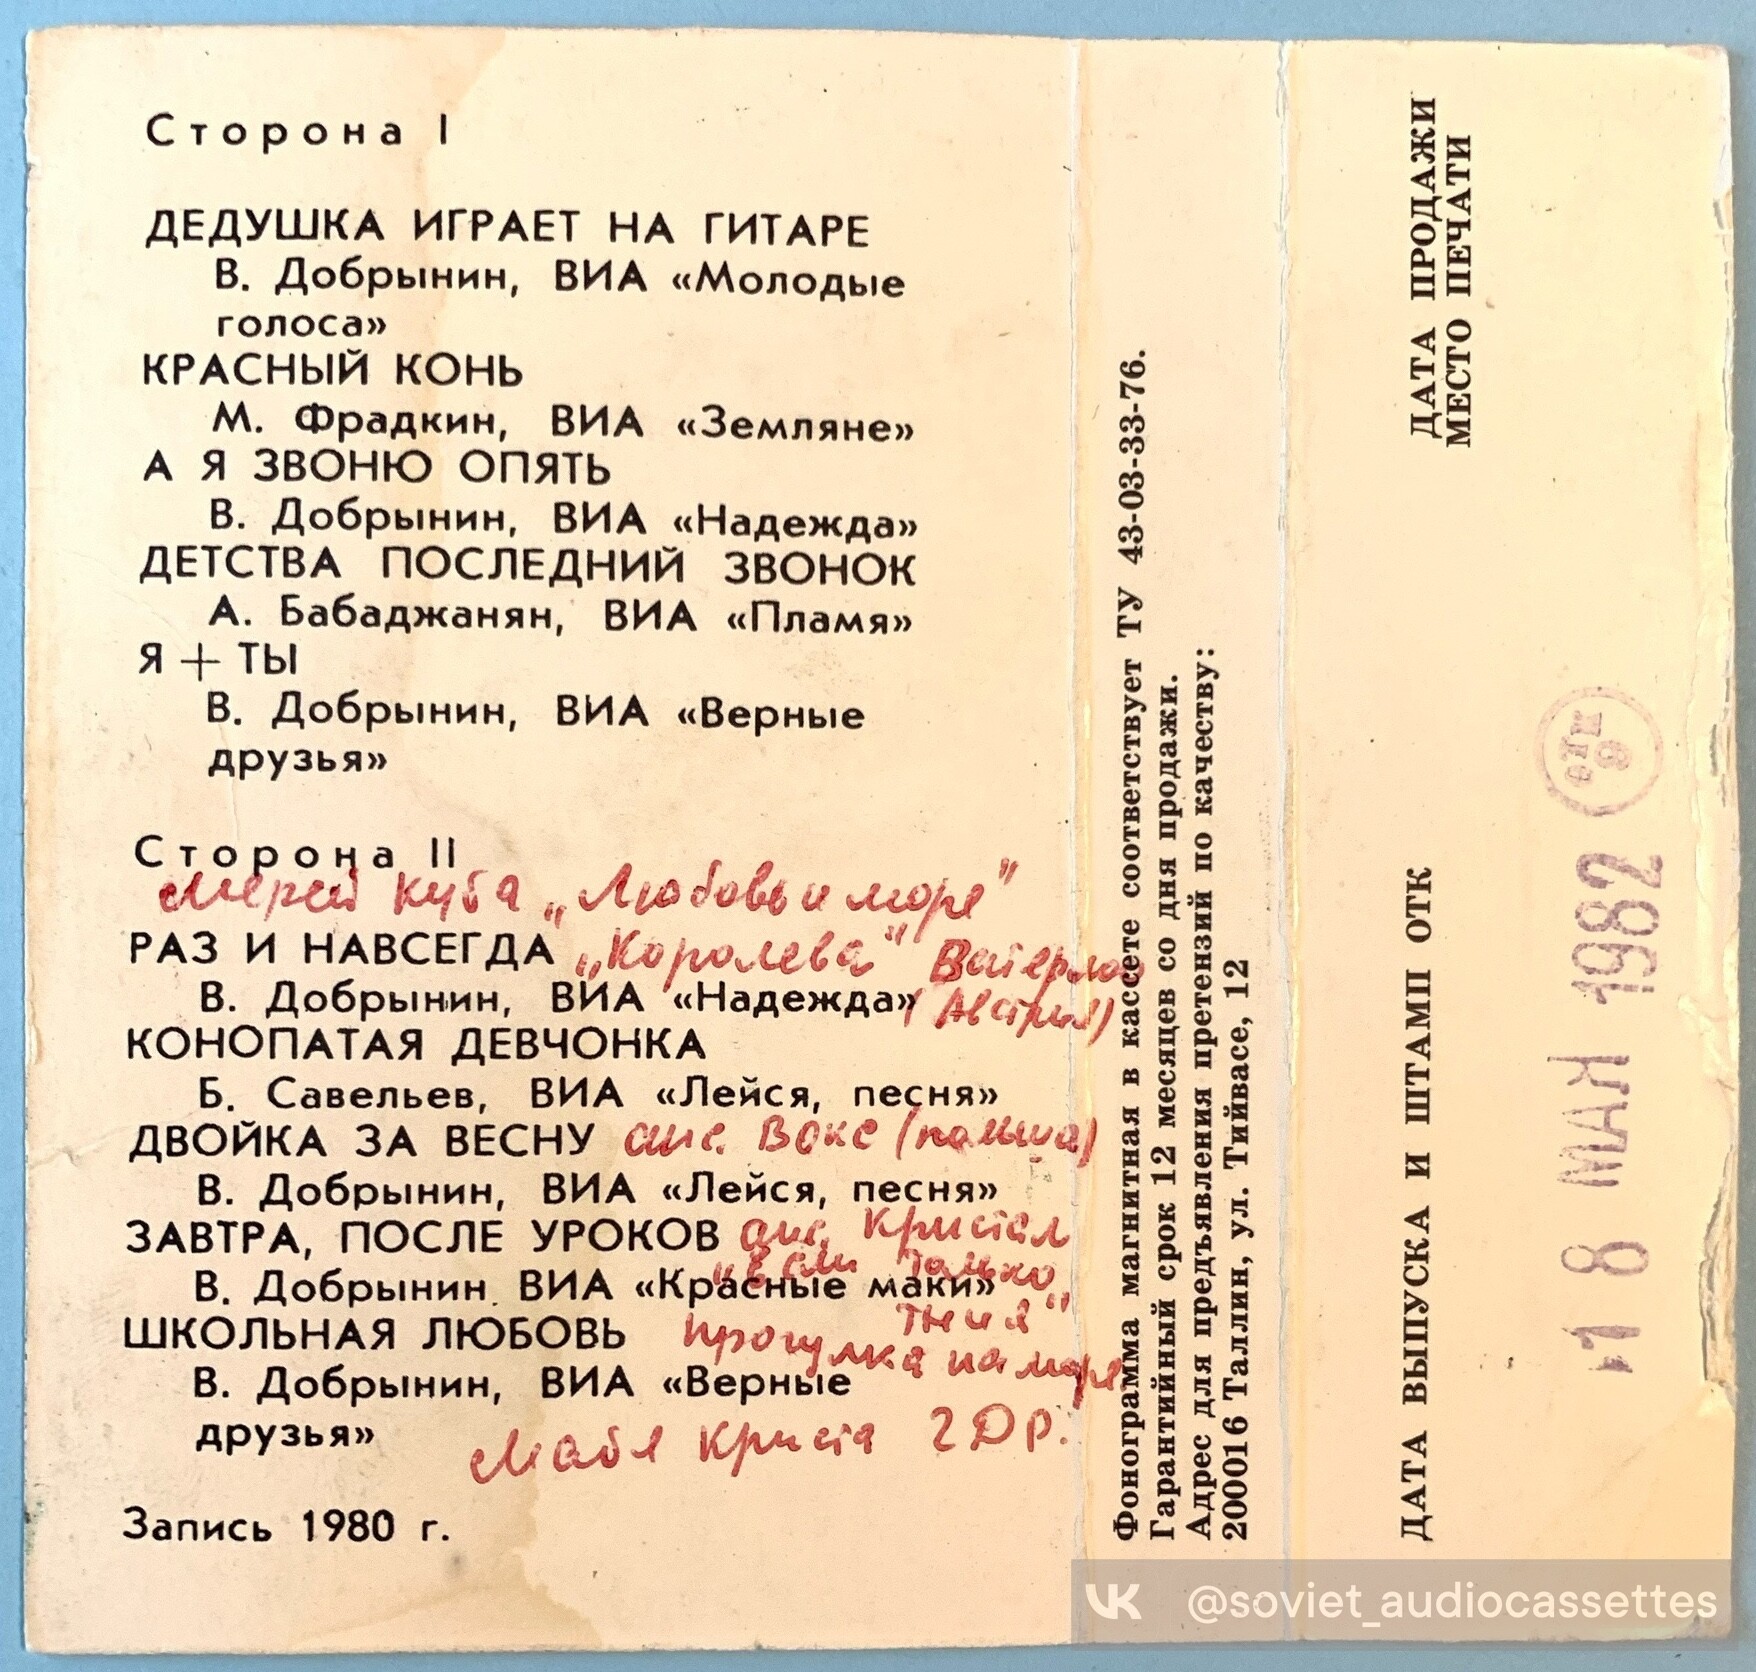 Сторона I
ДЕДУШКА ИГРАЕТ НА ГИТАРЕ
В. Добрынин, ВИА «Молодые
голоса»
КРАСНЫЙ КОНЬ
М. Фрадкин, ВИА «Земляне»
А Я ЗВОНЮ ОПЯТЬ
В. Добрынин, ВИА «Надежда»
ДЕТСТВА ПОСЛЕДНИЙ ЗВОНОК
А. Бабаджанян, ВИА «Пламя»
Я + ТЫ
В. Добрынин, ВИА «Верные
друзья»
Сторона II
Куба „Любовь и море"
РАЗ И НАВСЕГДА „Королева" Ватерлоо
В. Добрынин, ВИА «Надежда» (Австрия)
КОНОПАТАЯ ДЕВЧОНКА
Б. Савельев, ВИА «Лейся, песня»
ДВОЙКА ЗА ВЕСНУ анс. Вокс (польша)
В. Добрынин, ВИА «Лейся, песня»
ЗАВТРА, ПОСЛЕ УРОКОВ анс. Кристал
„Если только
В. Добрынин ВИА «Красные маки»
ШКОЛЬНАЯ ЛЮБОВЬ Прогулка на море
В. Добрынин, ВИА «Верные
друзья»
Криста ГДР.
Запись 1980 г.
Фонограмма магнитная в кассете соответствует ТУ 43-03-33-76.
Гарантийный срок 12 месяцев со дня продажи.
Адрес для предъявления претензий по качеству:
200016 Таллин, ул. Тийвасе, 12
ДАТА ПРОДАЖИ
МЕСТО ПЕЧАТИ
ДАТА ВЫПУСКА И ШТАМП ОТК
18 МАЙ 1982
@soviet_audiocassettes